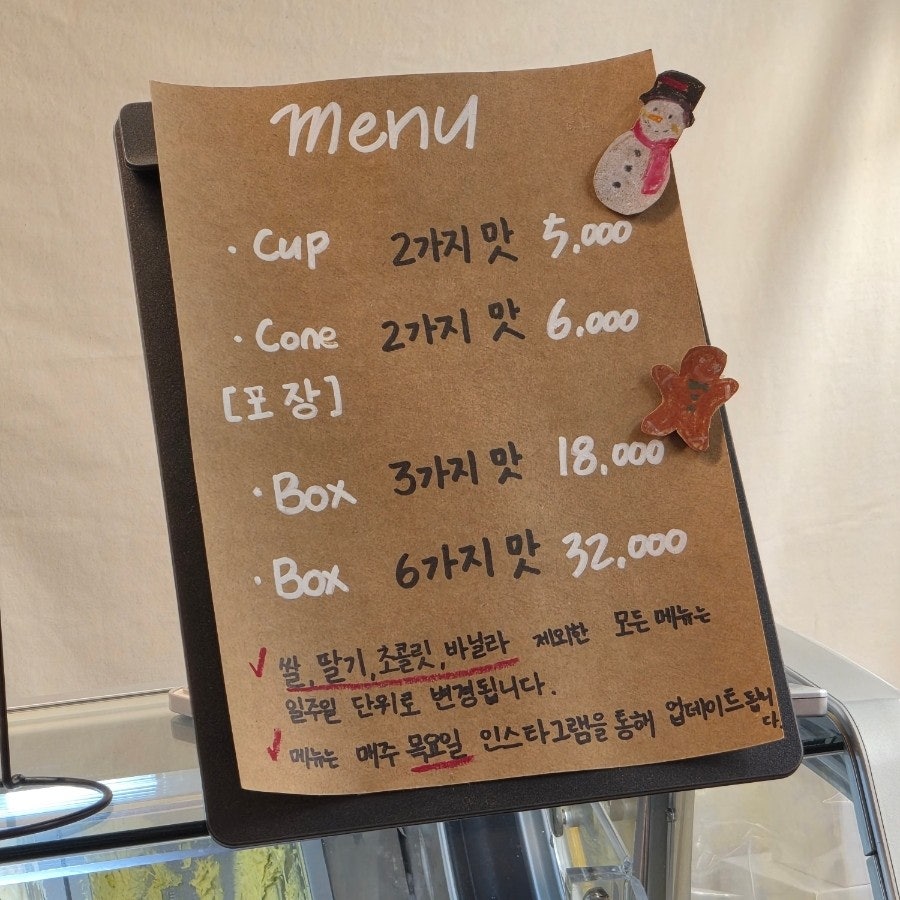 menu
· Cup 2가지 맛 5,000
· Cone 2가지 맛 6,000
[포장]
· Box 3가지 맛 18,000
· Box 6가지 맛 32,000
✓ 쌀, 딸기, 초콜릿, 바닐라 제외한 모든 메뉴는
일주일 단위로 변경됩니다.
✓ 메뉴는 매주 목요일 인스타그램을 통해 업데이트 됩니
다.